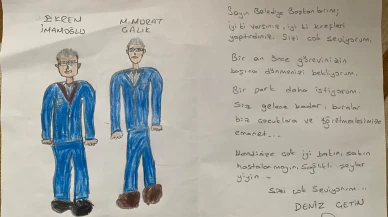 EKREM
İMAMOĞLU
M. MURAT
ÇALIK
Sayın Belediye Başkanlarım;
iyi ki varsınız, iyi ki kreşleri
yaptırdınız. Sizi çok seviyorum.
Bir an önce görevinizin
başına dönmenizi bekliyorum.
Bir park daha istiyorum.
Siz gelene kadar, buralar
biz çocuklara ve öğretmenlerimize
emanet...
Kendinize çok iyi bakın, sakın
hastalanmayın. Sağlıklı şeyler
yiyin..
Sizi çok seviyorum...
DENİZ ÇETİN